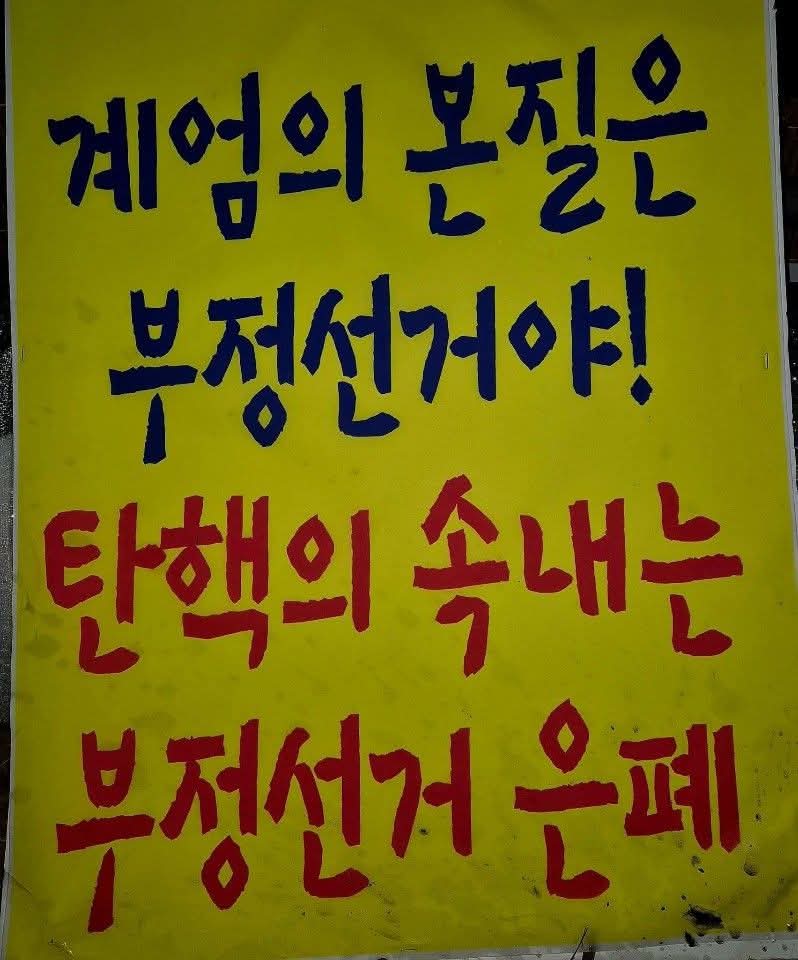 계엄의 본질은
부정선거야!
탄핵의 속내는
부정선거 은폐